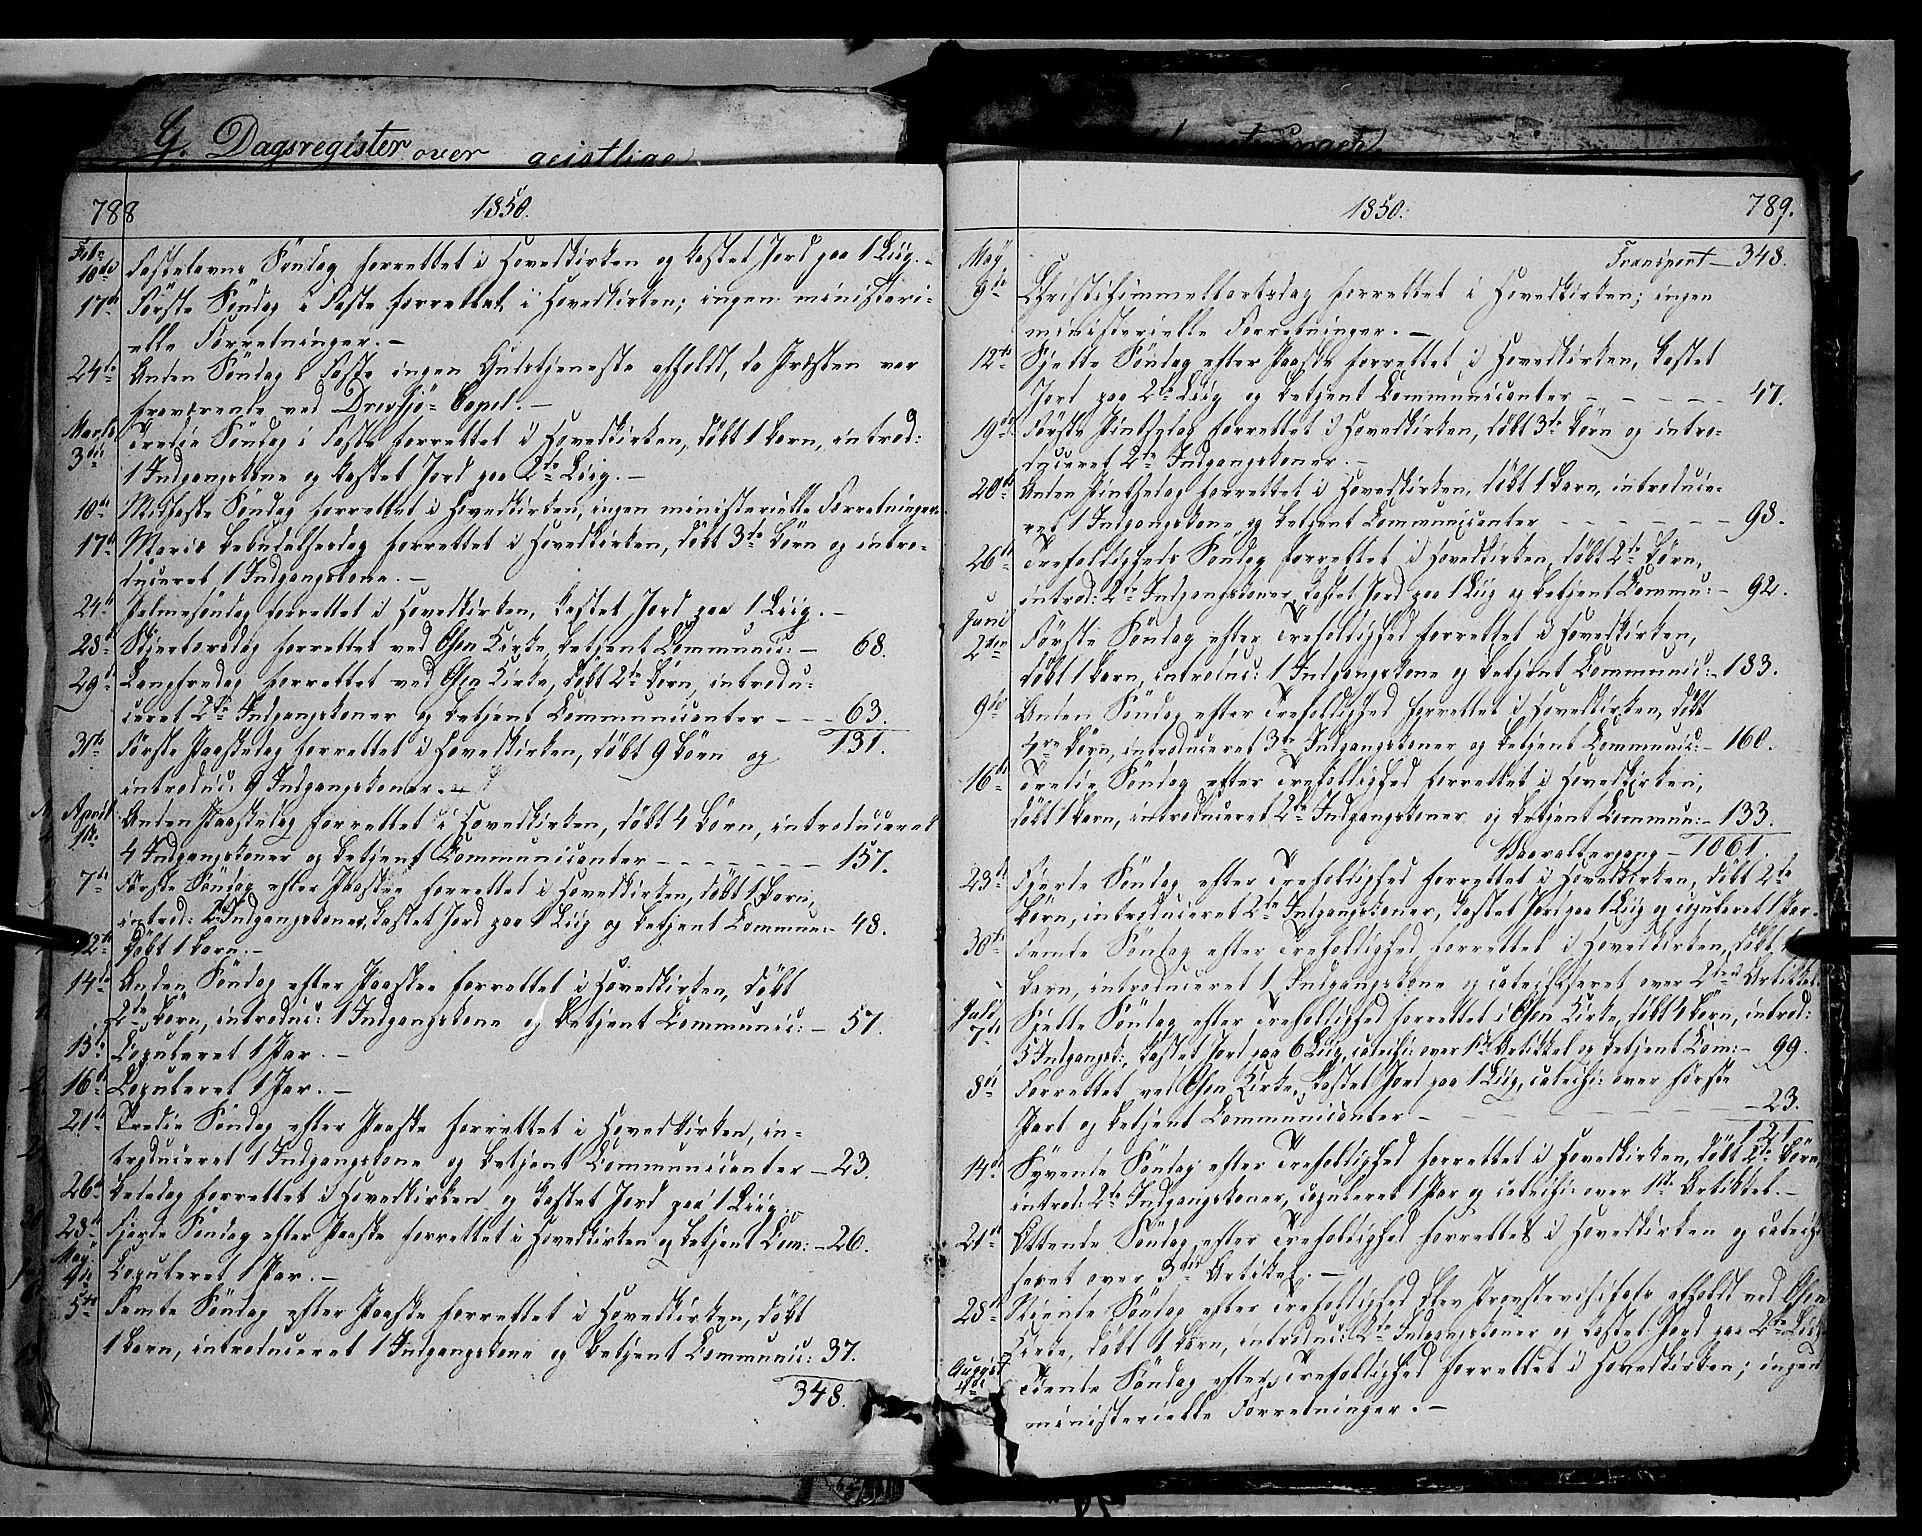 G. Dagsregister over geistlige
788
1850.
Feb:
10de Fastelavns Söndag forrettet i Hovedkirken og kastet Jord paa 1 Liig. –
17de Förste Söndag i Faste forrettet i Hovedkirken; ingen ministeri-
elle Forretninger. –
24de Anden Söndag i Faste ingen Gudstjeneste afholdt, da Præsten var
fraværende ved Drevsjö-Capel. –
Marts
3die Tredie Söndag i Faste forrettet i Hovedkirken, döbt 1 Barn, introd:
1 Indgangskone og kastet Jord paa 2de Liig. –
10de Midfaste Söndag forrettet i Hovedkirken, ingen ministerielle Forretninger.
17de Mariæ Bebudelsesdag forrettet i Hovedkirken, döbt 3de Börn og intro-
duceret 1 Indgangskone. –
24de Palmesöndag forrettet i Hovedkirken, kastet Jord paa 1 Liig. –
28de Skjertorsdag forrettet ved Osen Kirke, betjent Communic: – 68.
29de Langfredag forrettet ved Osen Kirke, döbt 2de Börn, introdu-
ceret 2de Indgangskoner og betjent Communicanter – – – 63.
131.
31te Förste Paaskedag forrettet i Hovedkirken, döbt 9 Börn og
introduc: 9 Indgangskoner. –
April
1ste Anden Paaskedag forrettet i Hovedkirken, döbt 4 Börn, introduceret
4 Indgangskoner og betjent Communicanter – – – – – – – 157.
7de Förste Söndag efter Paaske forrettet i Hovedkirken, döbt 1 Barn,
introd: 2 Indgangskoner, kastet Jord paa 1 Liig og betjent Commun: – 48.
12te Döbt 1 Barn. –
14de Anden Söndag efter Paaske forrettet i Hovedkirken, döbt
2de Börn, introduc: 1 Indgangskone og betjent Communic: – 57.
15de Copuleret 1 Par. –
16de Copuleret 1 Par. –
21de Tredie Söndag efter Paaske forrettet i Hovedkirken, in-
troduceret 1 Indgangskone og betjent Communicanter – 23.
26de Bededag forrettet i Hovedkirken og kastet Jord paa 1 Liig. –
28de Fjerde Söndag efter Paaske forrettet i Hovedkirken og betjent Com: – 26.
May
4de Copuleret 1 Par. –
5te Femte Söndag efter Paaske forrettet i Hovedkirken, döbt
1 Barn, introduceret 1 Indgangskone og betjent Communic: 37.
348.
1850.
789.
Transport – 348.
May
9de Christi Himmelfartsdag forrettet i Hovedkirken; ingen
ministerielle Forretninger. –
12te Sjette Söndag efter Paaske forrettet i Hovedkirken, kastet
Jord paa 2de Liig og betjent Communicanter – – – – – 47.
19de Förste Pintsedag forrettet i Hovedkirken, döbt 3de Börn og intro-
duceret 2de Indgangskoner. –
20de Anden Pintsedag forrettet i Hovedkirken, döbt 1 Barn, introduce-
ret 1 Indgangskone og betjent Communicanter – – – – – – – 98.
26de Trefoldigheds Söndag forrettet i Hovedkirken, döbt 2de Börn,
introd: 2de Indgangskoner, kastet Jord paa 1 Liig og betjent Commu: – 92.
Juni
2den Förste Söndag efter Trefoldighed forrettet i Hovedkirken,
döbt 1 Barn, introduc: 1 Indgangskone og betjent Communic: – 183.
9de Anden Söndag efter Trefoldighed forrettet i Hovedkirken, döbt
4re Börn, introduceret 3de Indgangskoner og betjent Communic: – 160.
16de Tredie Söndag efter Trefoldighed forrettet i Hovedkirken,
döbt 1 Barn, introduceret 2de Indgangskoner og betjent Commun: – 133.
Vaaraltergang – 1061.
23de Fjerde Söndag efter Trefoldighed forrettet i Hovedkirken, döbt 2de
Börn, introduceret 2de Indgangskoner, kastet Jord paa 1 Liig og copuleret 1 Par. –
30te Femte Söndag efter Trefoldighed forrettet i Hovedkirken, döbt 1
Barn, introduceret 1 Indgangskone og catechiseret over 2den Artikkel.
Juli
7de Sjette Söndag efter Trefoldighed forrettet i Osen Kirke, döbt 4 Börn, introd:
5 Indgangsk:, kastet Jord paa 6 Liig, catechis: over 1ste Artikkel og betjent Com: – 99.
8de Forrettet ved Osen Kirke, kastet Jord paa 1 Liig, catechis: over förste
Part og betjent Communicanter – – – – – – – – 23.
121
14de Syvende Söndag efter Trefoldighed forrettet i Hovedkirken, döbt 2de Börn,
introd: 2de Indgangskoner, copuleret 1 Par og catechis: over 1ste Artikkel. –
21de Ottende Söndag efter Trefoldighed forrettet i Hovedkirken og catechi-
seret over 3die Artikel. –
28de Niende Söndag efter Trefoldighed blev Provstevisitats afholdt ved Osen
Kirke, döbt 1 Barn, introduc: 2de Indgangskoner og kastet Jord paa 2de Liig.
August
4de Tiende Söndag efter Trefoldighed forrettet i Hovedkirken; ingen
ministerielle Forretninger. –